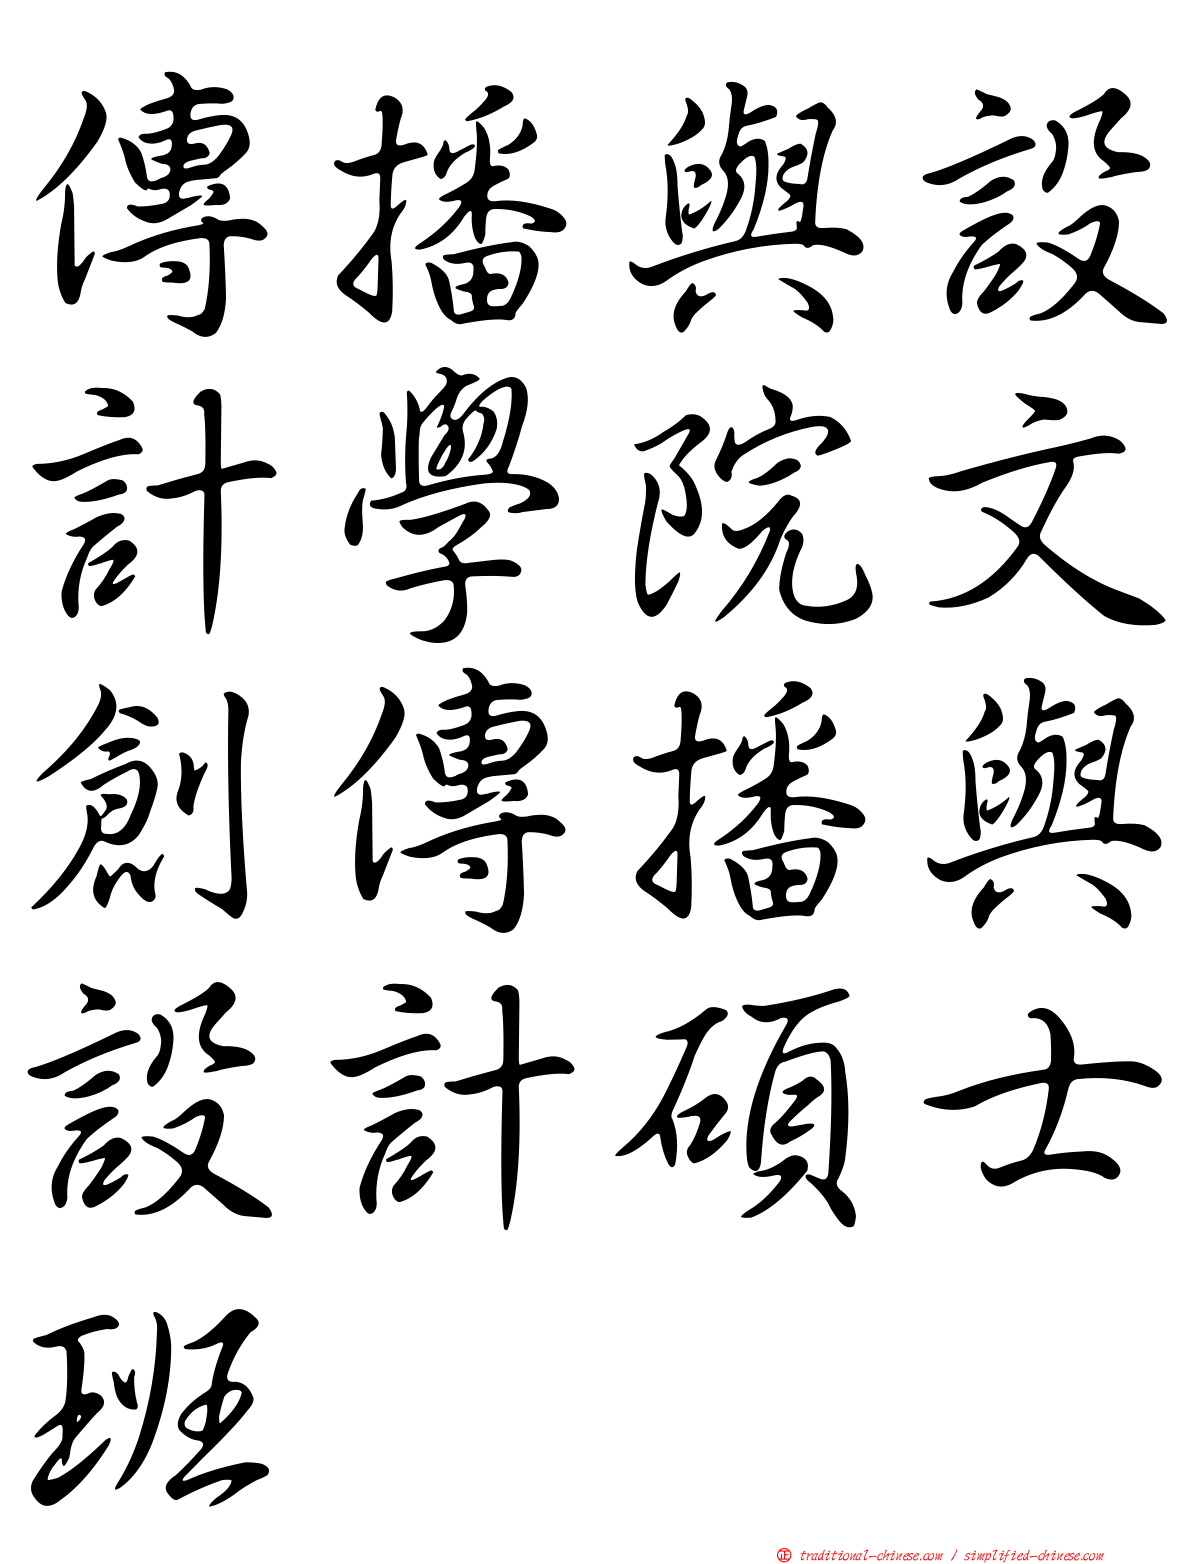 傳播與設
計學院文
創傳播與
設計碩士
班
正 traditional-chinese.com / simplified-chinese.com